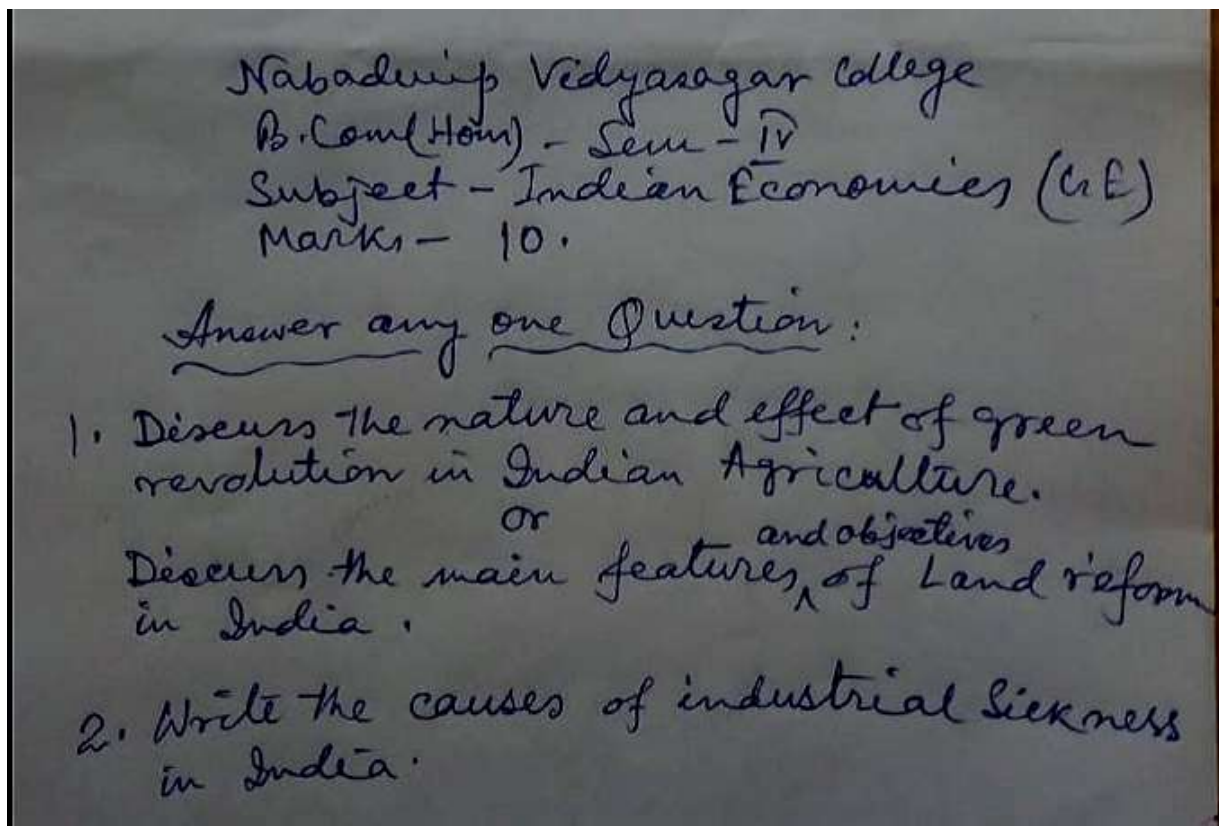 Nabadwip Vidyasagar College
B.Com(Hom) - Sem - IV
Subject - Indian Economics (GE)
Marks - 10.
Answer any one Question:
1. Discuss the nature and effect of green
revolution in Indian Agriculture.
or
Discuss the main features and objectives of Land reform
in India.
2. Write the causes of industrial Sickness
in India.